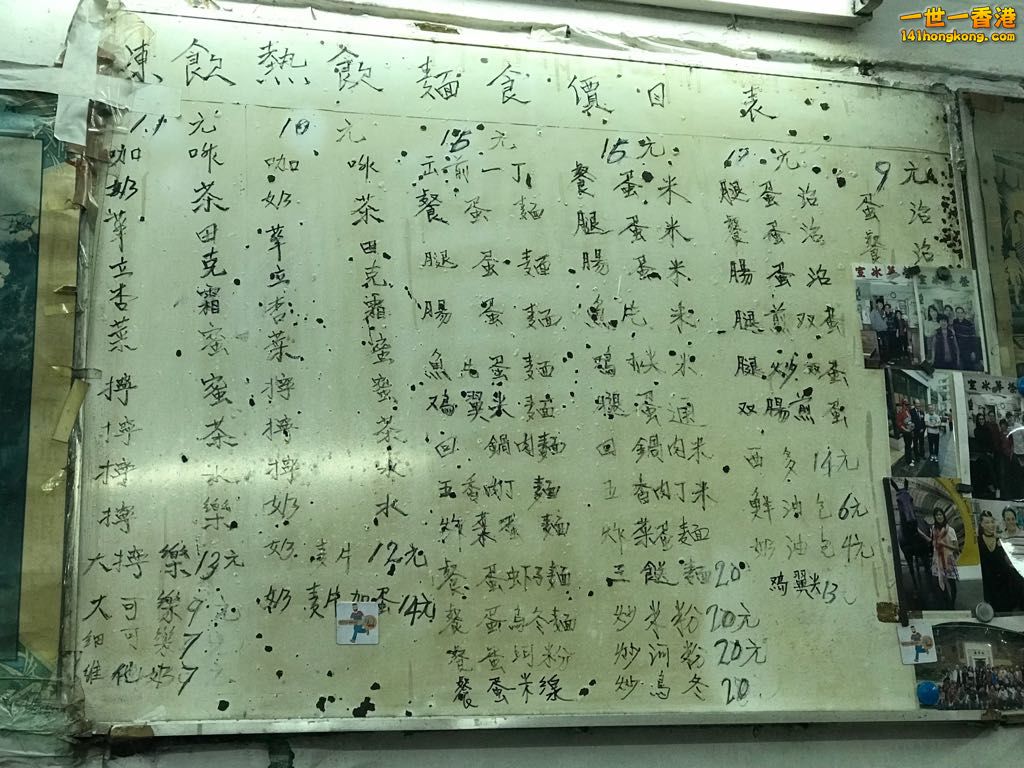 一世一香港
141hongkong.com
凍飲熱飲麵食價目表
11元
咖啡
奶茶
華田
立克
杏霜
菜蜜
檸蜜
檸茶
檸水
檸樂
大檸樂13元
大可樂9元
細可樂7
維他奶7
10元
咖啡
奶茶
華田
立克
杏霜
菜蜜
檸蜜
檸茶
檸水
奶水
奶麦片12元
奶麦片加蛋14元
15元
五前一丁
餐蛋麵
腿蛋麵
腸蛋麵
魚片蛋麵
鸡翼米麵
回鍋肉麵
五香肉丁麵
炸菜蛋麵
餐蛋虾子麵
餐蛋烏冬麵
餐蛋河粉
餐蛋米線
15元
餐蛋米
腿蛋米
腸蛋米
魚片米
腿蛋通
回鍋肉米
五香肉丁米
炸菜蛋麵
三餸麵20
炒米粉20元
炒河粉20元
炒烏冬20
元
腿蛋治
餐蛋治
腸蛋治
腿煎双蛋
腿炒双蛋
双腸煎蛋
西多14元
鮮油包6元
奶油包4元
鸡翼米13元
9元
蛋治
餐治
治
室冰華榮
室冰華榮